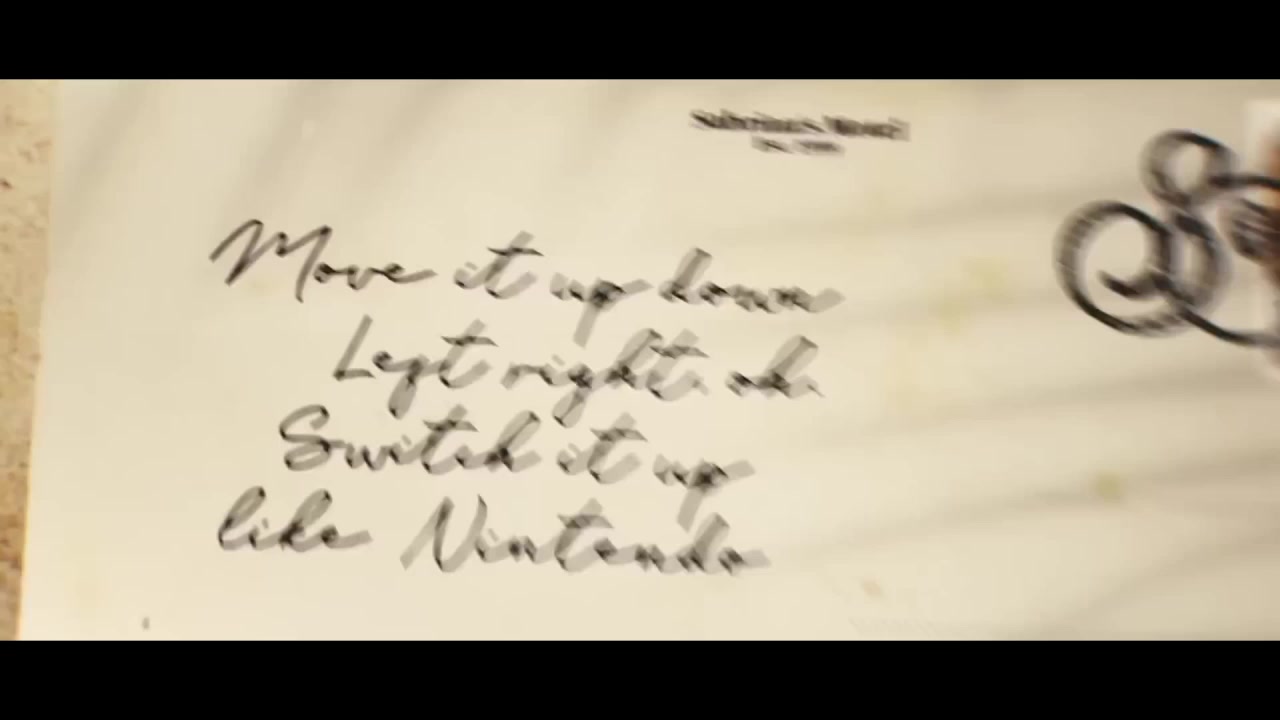 Move it up down
Left right oh
Switch it up
like Nintendo